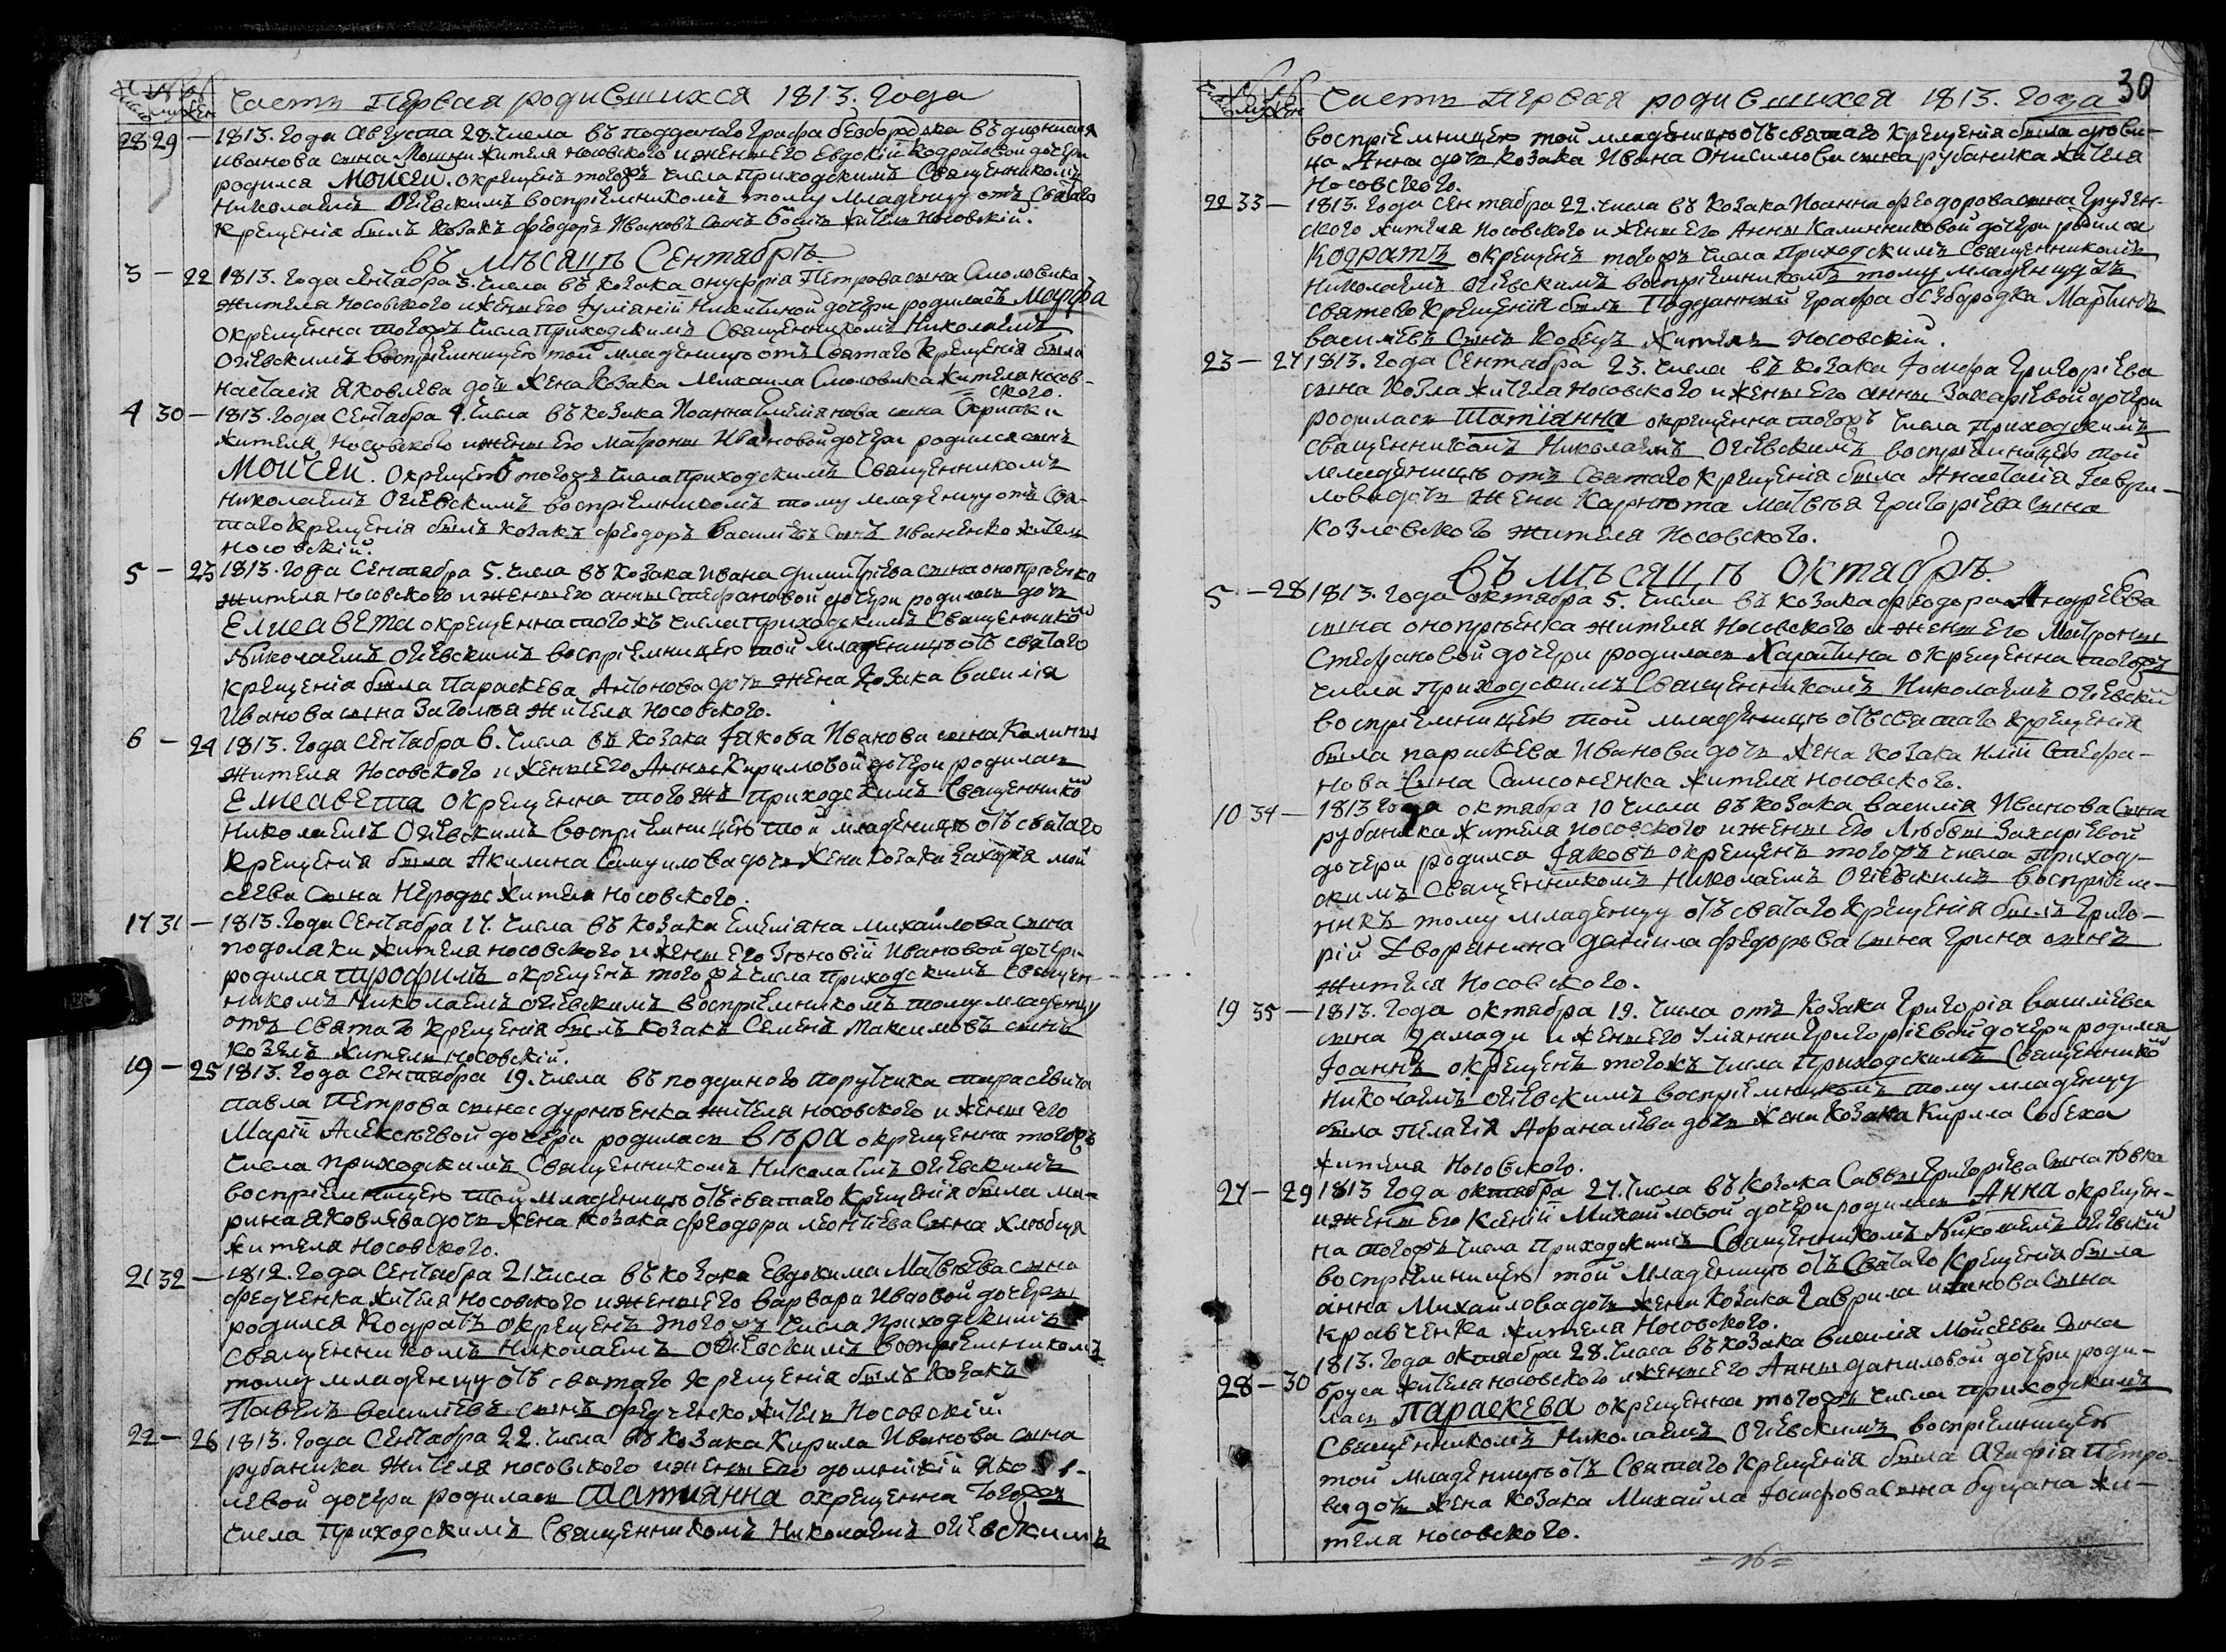 Часть Первая родившихся 1813. года
28 29 — 1813. года Августа 28. числа въ подданого Графа безбородка
иванова сына Мошни жителя Носовского и жены его Евдокіи Кодратовой дочери
родился Моисей. окрещенъ тогожъ числа приходскимъ Священникомъ
Николаемъ Огіевскимъ воспріемникомъ тому младенцу отъ Святаго
крещенія былъ козакъ Феодоръ Ивановъ сынъ житель Носовскій.
въ мѣсяцѣ Сентябрѣ.
3 — 22 1813. года Сентября 3. числа въ козака онуфрія Петрова сына Смоловика
жителя Носовского и жены его Іуліаніи Никитиной дочери родилась Марфа
окрещенна тогожъ числа приходскимъ Священникомъ Николаемъ
Огіевскимъ воспріемницею той младеницѣ отъ Святаго крещенія была
Настасія Яковлева дочь жена козака Михаила Смоловика жителя Носов-
ского.
4 30 — 1813. года Сентября 4. числа въ козака Иоанна Емеліянова сына Скрипки
жителя Носовского и жены его Матроны Ивановой дочери родился сынъ
Моисей. окрещенъ тогожъ числа приходскимъ Священникомъ
Николаемъ Огіевскимъ воспріемникомъ тому младенцу отъ Свя-
таго крещенія былъ козакъ Феодоръ Василіевъ сынъ Иваненко житель
Носовскій.
5 — 23 1813. года Сентября 5. числа въ козака Ивана Димитріева сына онопріенка
жителя Носовского и жены его анны Стефановой дочери родилась дочь
Елисавета окрещенна тогожъ числа приходскимъ Священнико
Николаемъ Огіевскимъ воспріемницею той младеницѣ отъ святаго
крещенія была Параскева Антонова дочь жена козака Василія
Иванова сына жителя Носовского.
6 — 24 1813. года Сентября 6. числа въ козака Іакова Иванова сына Калины
жителя Носовского и жены его Анны Кириловой дочери родилась
Елисавета окрещенна тогожъ приходскимъ Священнико
Николаемъ Огіевскимъ воспріемницею той младеницѣ отъ святаго
крещенія была Акилина Самуилова дочь жена козака Захарія мои
сеева сына Нероды жителя Носовского.
17 31 — 1813. года Сентября 17. числа въ козака Емеліана михайлова сына
подолаки жителя носовского и жены его Зѣновіи Ивановой дочери
родился Трофимъ окрещенъ тогожъ числа приходскимъ Священ-
никомъ Николаемъ Огіевскимъ воспріемникомъ тому младенцу
отъ Святаго крещенія былъ козакъ Семенъ Максимовъ сынъ
козелъ житель носовскій.
19 — 25 1813. года Сентября 19. числа въ подданого Порутчика тарасевича
павла Петрова сына дурнѣенка жителя носовского и жены его
Маріи Алексѣевой дочери родилась Вѣра окрещенна тогожъ
числа приходскимъ Священникомъ Николаемъ Огіевскимъ
воспріемницею той младеницѣ отъ святаго крещенія была ма-
рина Яковлева дочь жена козака Феодора леонтіева сына хлѣбця
жителя носовского.
21 32 — 1812. года Сентября 21. числа въ козака Евдокима Матвѣева сына
федченка жителя Носовского и жены его Варвары Ивановой дочеры
родился Кодратъ окрещенъ тогожъ числа приходскимъ
священникомъ Николаемъ Огіевскимъ воспріемникомъ
тому младенцу отъ святаго крещенія былъ козакъ
Павелъ Василіевъ сынъ федченко житель Носовскій
22 — 26 1813. года Сентября 22. числа въ козака Кирила Иванова сына
рубаника жителя носовского и жены его домникіи Яко
левой дочери родилась Татиянна окрещенна тогожъ
числа приходскимъ Священникомъ Николаемъ огіевскимъ
30
Часть Первая родившихся 1813. года
воспріемницею той младеницѣ отъ святаго крещенія была дѣви-
ца Анна дочь козака Ивана Онисимова сына рубаника жителя
Носовского.
22 33 — 1813. года Сентября 22. числа въ козака Иоанна Феодорова сына Грузен-
ского жителя Носовского и жены его Анны Калинниковой дочери родился
Кодратъ окрещенъ тогожъ числа Приходскимъ Священникомъ
Николаемъ Огіевскимъ воспріемникомъ тому младенцу отъ
святаго крещенія былъ Подданный Графа безбородка Мартинъ
василіевъ сынъ Кобецъ житель Носовскій.
23 — 27 1813. года Сентября 23. числа въ козака Іосифа Григоріева
сына Козла жителя Носовского и жены его анны Захаріевой дочери
родилась Татіанна окрещенна тогожъ числа приходскимъ
священникомъ Николаемъ Огіевскимъ воспріемницею той
младеницѣ отъ Святаго крещенія была Анастасія Гаври-
лова дочь жена Матвѣя Григоріева сына
козловского жителя Носовского.
въ мѣсяцѣ Октябрѣ.
5 — 28 1813. года октября 5. числа въ козака Феодора Андреева
сына онопрѣенка жителя Носовского и жены его Матроны
Стефановой дочери родилась Харитина окрещенна тогожъ
числа приходскимъ Священникомъ Николаемъ Огіевски
воспріемницею той младеницѣ отъ святаго крещенія
была параскева Иванова дочь жена козака Иліи Стефа-
нова сына Самсоненка жителя носовского.
10 34 — 1813 года октября 10 числа въ козака Василія Иванова сына
рубаника жителя носовского и жены его Любвы Захаріевой
дочери родился Іаковъ окрещенъ тогожъ числа приход-
скимъ Священникомъ Николаемъ Огіевскимъ воспріем-
никъ тому младенцу отъ святаго крещенія былъ Григо-
рій Дворянина даніила Федорова сына Грина сынъ
жителя Носовского.
19 35 — 1813. года октября 19. числа отъ козака Григорія Василіева
сына и жены его Уліянны Григоріевой дочери родился
Іоаннъ окрещенъ тогожъ числа Приходскимъ Священнико
Николаемъ Огіевскимъ воспріемникомъ тому младенцу
была Пелагія Афанасіева дочь жена козака Кирила Собека
жителя Носовского.
27 — 29 1813 года октября 27. числа въ козака Саввы Григоріева сына
и жены его Ксеніи Михайловой дочери родилась Анна окрещен-
на тогожъ числа Приходскимъ Священникомъ Николаемъ Огіевски
воспріемницею той младеницѣ отъ Святаго крещенія была
анна Михайлова дочь жена козака Гаврила сына
кравченка жителя Носовского.
28 — 30 1813. года октября 28. числа въ козака Василія Моисеева сына
бруса жителя носовского и жены его Анны даниловой дочери роди-
лась Параскева окрещенна тогожъ числа приходскимъ
Священникомъ Николаемъ Огіевскимъ воспріемницею
той младеницѣ отъ Святаго крещенія была Агафія Петро-
ва дочь жена козака Михаила Іосифова сына буцана жи-
теля носовского.